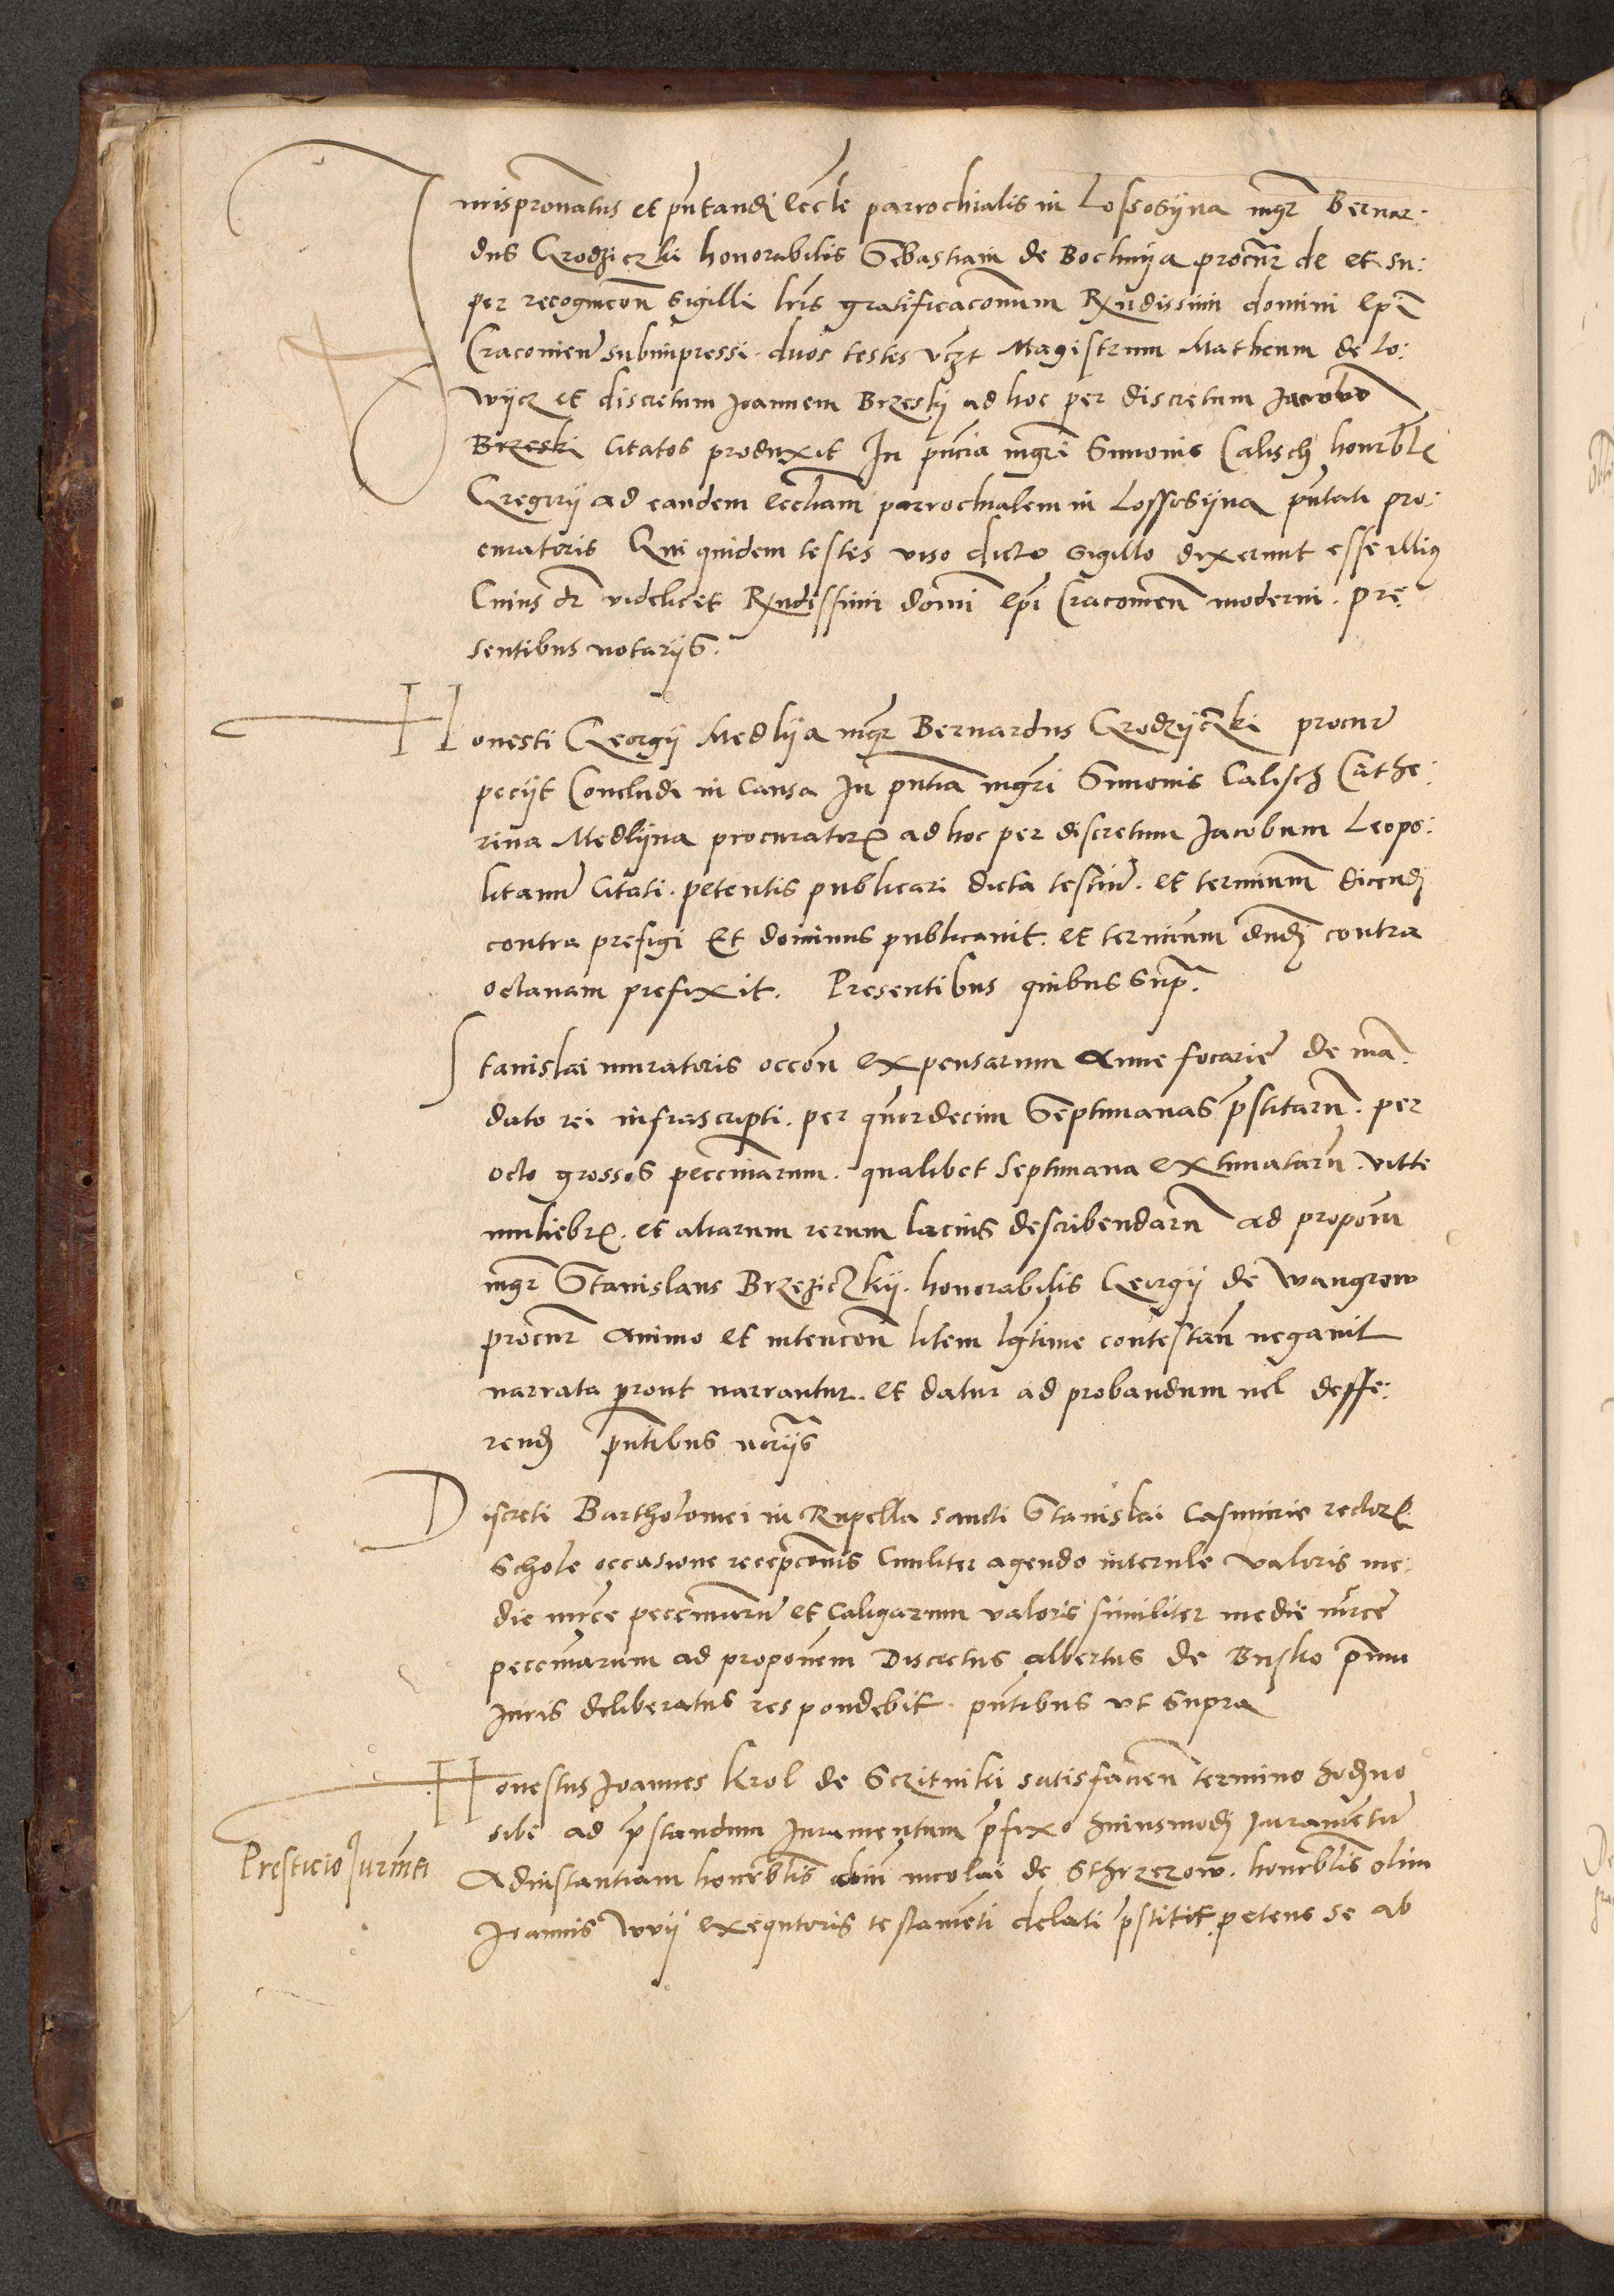 Jurispronatus et pntandi eccle parrochialis in Lossosyna mgr Bernar:
dus Grodziczki honorabilis Sebastiani de Bochnya procur de et su:
per recognicon sigilli lris gratificaconum Rxndissimi domini epi
Cracovien subimpressi. duos testes vczt Magistrum Matheum de Lo:
wycz et discretum Joannem Brzeski ad hoc per discretum Jacobum
Brzeski Citatos produxit In pncia mgri Simonis Calisch honrbl
Gregorij ad eandem eccliam parrochialem in Lossosyna pntati pro:
curatoris Qui quidem testes viso dicto sigillo dixerunt esse illius
Cuius dr videlicet Rxndissimi domi epi Cracovien moderni. pre
sentibus notarijs.
Honesti Georgij Medlya mgr Bernardus Grodzyczki procur
pecijt Concludi in Causa In pntia mgri Simonis Calisch Cathe:
rina Medlyna procurator ad hoc per discretum Jacobum Leopo:
litanu Citati. petentis publicari dicta testiu. et terminum dicendi
contra prefigi Et dominus publicavit. et terminum dndi contra
octavam prefixit. Presentibus quibus supr.
Stanislai muratoris occon expensarum Anne focarie de ma
dato rei infrascripti. per quordecim Septimanas pstitaru. per
octo grossos peccuniarum. qualibet septimana extimataru. vitte
muliebr. et aliarum rerum lacius describendaru ad proponu
mgr Stanislaus Brzeziczkij. honorabilis Georgij de Wangrow
procur animo et intencon litem lgtime contestan negavit
narrata prout narrantur. et datur ad probandum vel deffe:
rend pntibus notrijs
Discreti Bartholomei in Rupella sancti Stanislai Casimirie rector
Schole occasione recepconis Civiliter agendo interule valoris me:
die mrce peccuniaru et caligarum valoris similiter medie mrce
peccuniarum ad proponem Discretus albertus de Busko pnmu
Juris deliberatus respondebit. pntibus ut supra
Honestus Joannes Krol de Sczitniki satisfacien termino hodierno
sibi ad pstandum Juramentum pfixo huiusmodi Juramentu
Adinstantiam honrblis dni nicolai de Sthrzezow. honrblis olim
Joannis Wvij exequtoris testamenti delati pstitit petens se ab
Presticio Jurmti